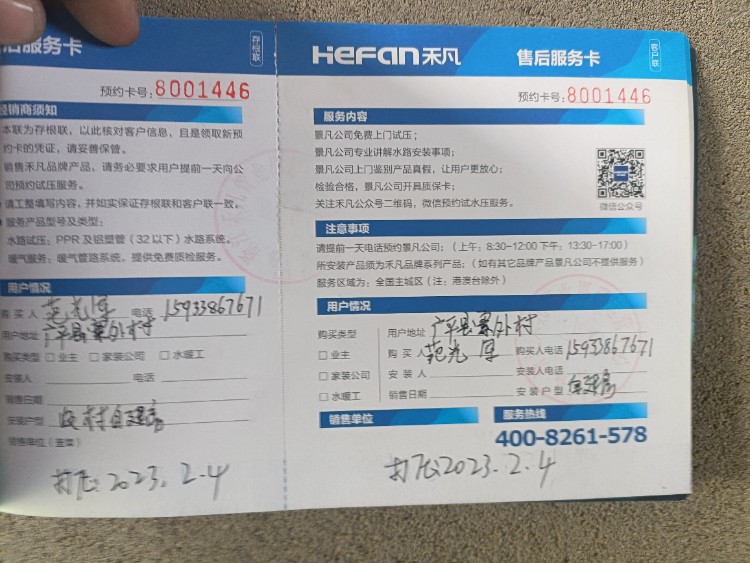 后服务卡
存根联
预约卡号:8001446
经销商须知
本联为存根联，以此核对客户信息，且是领取新预
约卡的凭证，请妥善保管。
销售禾凡品牌产品，请务必要求用户提前一天向公
司预约试压服务。
请工整填写内容，并如实保证存根联和客户联一致。
服务产品型号及类型:
水路试压: PPR 及铝塑管（32以下）水路系统。
暖气服务: 暖气管路系统，提供免费质检服务。
用户情况
购买人 范光厚 电话 15933867671
用户地址 广平县寨外村
购买类型 □业主 □家装公司 □水暖工
安装人 电话
销售日期
安装户型 农村自建房
销售单位（盖章）
打压:2023.2.4
HeFan禾凡
售后服务卡
客户联
预约卡号:8001446
服务内容
景凡公司免费上门试压;
景凡公司专业讲解水路安装事项;
景凡公司上门鉴别产品真假，让用户更放心;
检验合格，景凡公司开具质保卡;
关注禾凡公众号二维码，微信预约试水压服务。
微信公众号
注意事项
请提前一天电话预约景凡公司;（上午: 8:30-12:00 下午: 13:30-17:00）
所安装产品须为禾凡品牌系列产品;（如有其它品牌产品景凡公司不提供服务）
服务区域为: 全国主城区（注: 港澳台除外）
用户情况
购买类型
□业主
□家装公司
□水暖工
用户地址 广平县寨外村
购买人 范光厚 购买人电话 15933867671
安装人 安装人电话
销售日期 安装户型 自建房
销售单位
服务热线
400-8261-578
打压2023.2.4